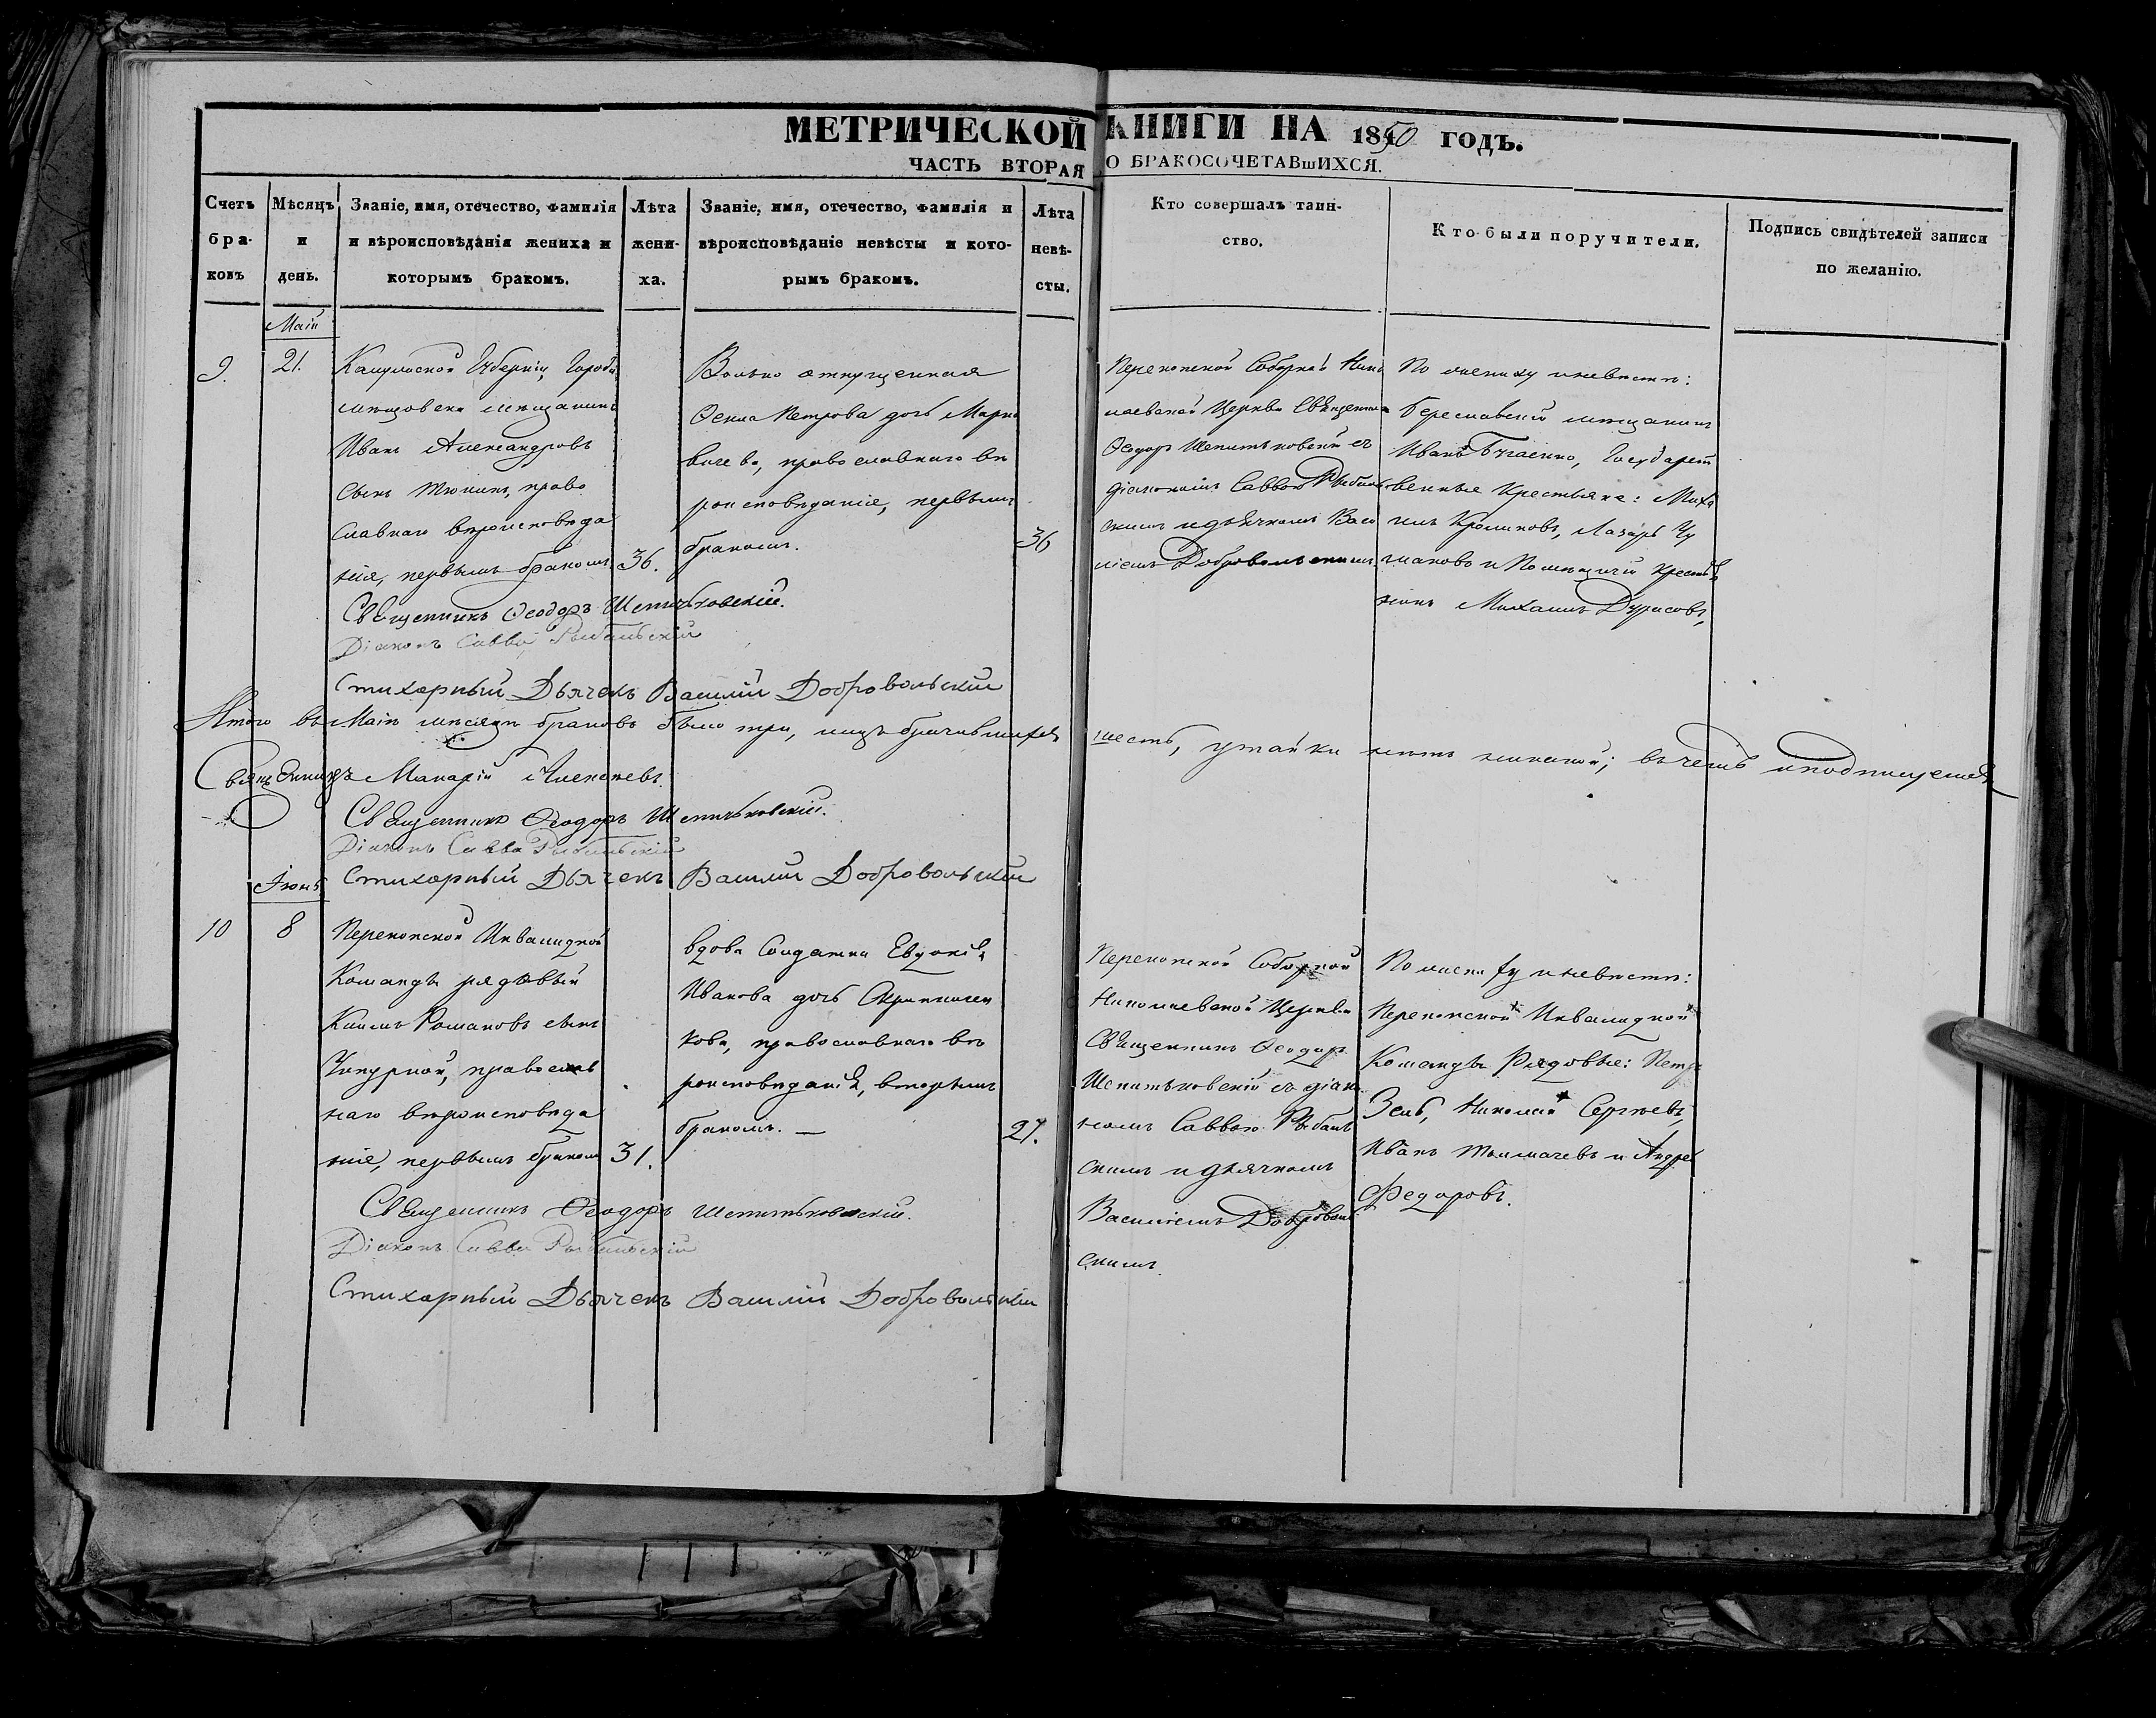 МЕТРИЧЕСКОЙ КНИГИ НА 1850 ГОДЪ.
ЧАСТЬ ВТОРАЯ О БРАКОСОЧЕТАВшИХСЯ.
Счетъ бра- ковъ
Мѣсяцъ и день.
Званіе, имя, отечество, фамилія и вѣроисповѣданія жениха и которымъ бракомъ.
Лѣта жени- ха.
Званіе, имя, отечество, фамилія и вѣроисповѣданіе невѣсты и кото- рымъ бракомъ.
Лѣта невѣ- сты.
Кто совершалъ таин- ство.
Кто были поручители.
Подпись свидѣтелей записи по желанію.
Маій
9.
21.
Калужской Губерніи, Города
мѣщанинъ
Иванъ Александровъ
сынъ Тюнинъ, право
славнаго вѣроисповѣда
нія, первымъ бракомъ
36.
Вольно отпущенная
Петрова дочь Марке
вичева, православнаго вѣ
роисповѣданіе, первымъ
бракомъ.
36
Перекопской Соборной Нико
лаевской Церкви Священникъ
Ѳеодоръ Шепитьковскій съ
діакономъ Саввою Рыбаль
скимъ и дьячкомъ Васи
ліемъ Добровольскимъ
По жениху и невѣстѣ:
Бериславскій мѣщанинъ
Иванъ Бугаенко, Государст
венные Крестьяне: Миха
илъ Кроликовъ, Лазарь Чу
маковъ и Помѣщичій Кресть
янинъ Михаилъ Дурасовъ,
Священникъ Ѳеодоръ Шепитьковскій.
Діаконъ Савва Рыбальскій
Стихарный Дьячекъ Василій Добровольскій
Итого въ Маіѣ мѣсяцѣ браковъ было три, лицъ брачившихся шесть, утайки нѣтъ никакой; въ чемъ и подпишемся
Макарій Алексѣевъ
Священникъ Ѳеодоръ Шепитьковскій.
Діаконъ Савва Рыбальскій
Стихарный Дьячекъ Василій Добровольскій
Іюнь
10
8
Перекопской Инвалидной
Команды рядовый
Климъ Романовъ сынъ
Чикурной, православ
наго вѣроисповѣда
нія, первымъ бракомъ
31.
вдова Солдатка Евдокія
Иванова дочь
кова, православнаго вѣ
роисповѣданія, вторымъ
бракомъ. —
27.
Перекопской Соборной
Николаевской Церкви
Священникъ Ѳеодоръ
Шепитьковскій съ діако
номъ Саввою Рыбаль
скимъ и дьячкомъ
Василіемъ Доброволь
скимъ.
По жениху и невѣстѣ:
Перекопской Инвалидной
Команды Рядовые: Петръ
Зебъ, Николай Сергѣевъ,
Иванъ Толмачевъ и Андрей
Федоровъ.
Священникъ Ѳеодоръ Шепитьковскій.
Діаконъ Савва Рыбальскій
Стихарный Дьячекъ Василій Добровольскій